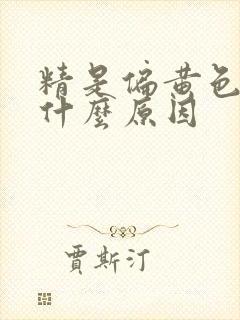 精是偏黄色
什麼原因
賈斯汀